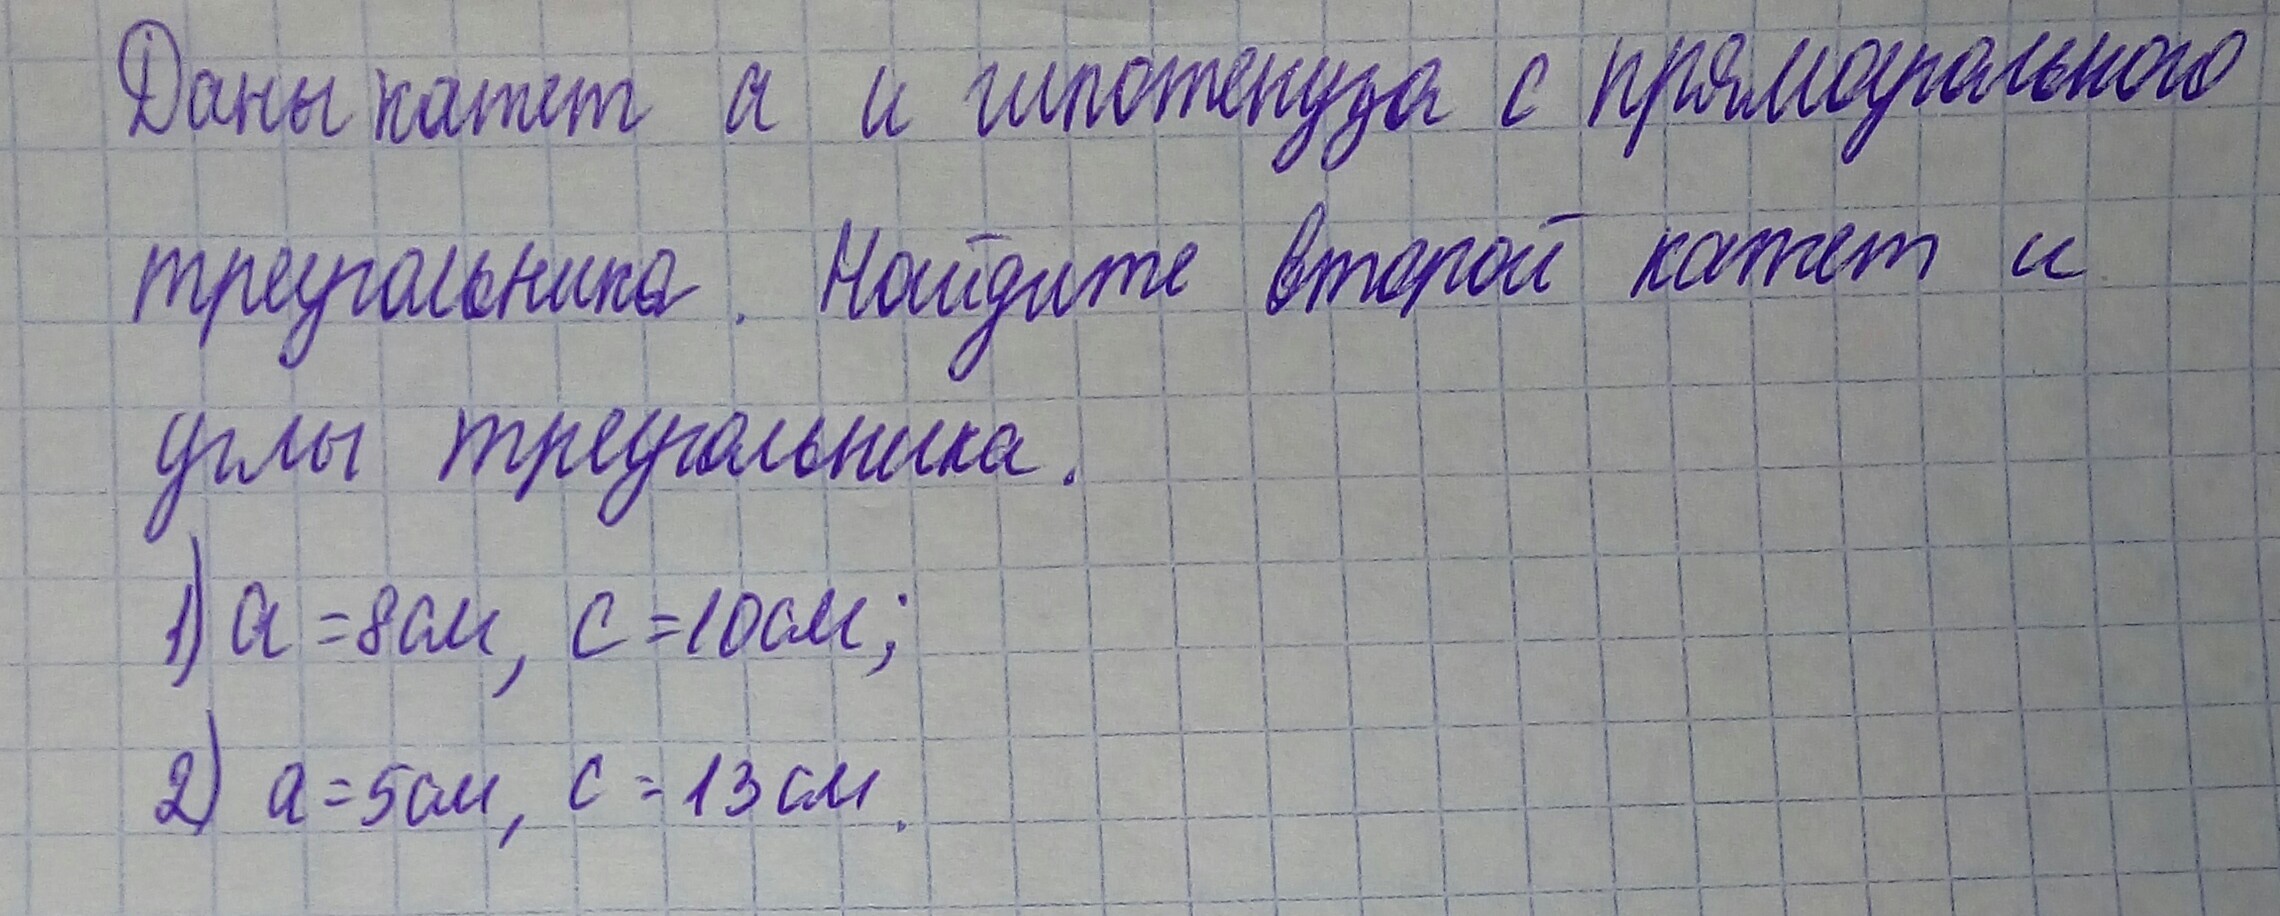 Даны катет а и гипотенуза с прямоугольного
треугольника. Найдите второй катет и
углы треугольника.
1) а = 8см, с = 10см;
2) а = 5см, с = 13см.